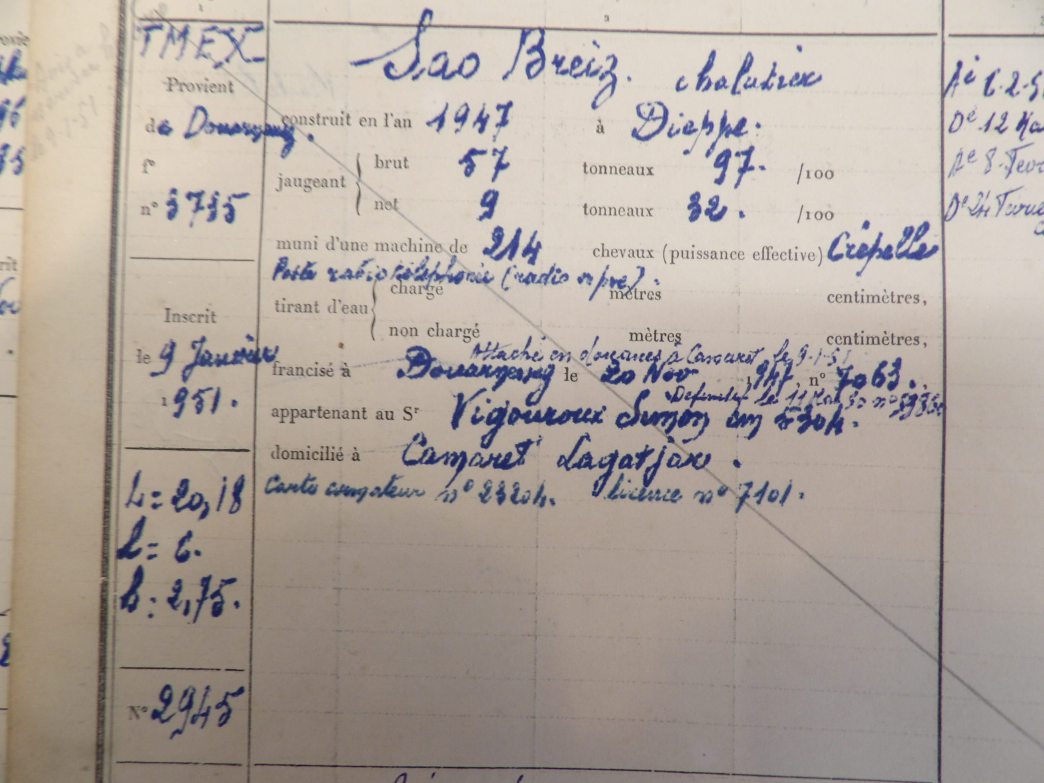 1
TMEX
Provient
de Douarnenez.
f°
n° 3735
Inscrit
le 9 Janvier
1951.
L = 20,18
l = 6.
h : 2,75.
N° 2945
2
Sao Breiz. chalutier
construit en l'an 1947 à Dieppe.
jaugeant brut 57 tonneaux 97. /100
net 9 tonneaux 32. /100
muni d'une machine de 214 chevaux (puissance effective) Crépelle
Poste radiotéléphonie (radio
tirant d'eau chargé mètres centimètres,
non chargé mètres centimètres,
Attaché en douanes à Camaret le 9-1-51
francisé à Douarnenez le 20 Nov 1947, n° 7063.
Définitif le 11
appartenant au Sr Vigouroux Simon
domicilié à Camaret Lagatjar.
Carte armateur n° 23204. licence n° 7101.
Aé 6.2.5
Dé 12 Ma
Aé 8. Fev
Dé 24